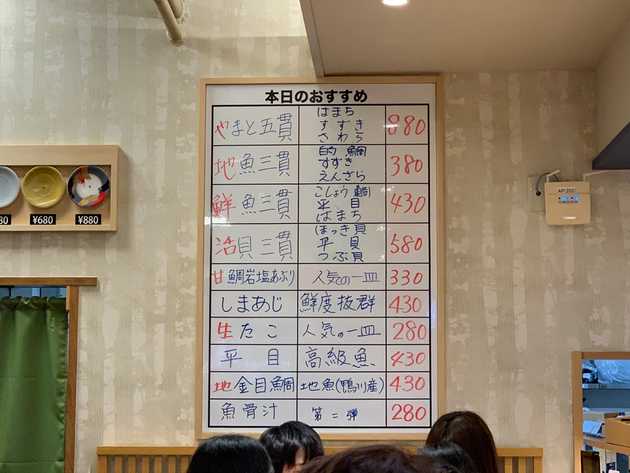 本日のおすすめ
やまと五貫 はまち すずき さわら 880
地魚三貫 的鯛 すずき えんざら 380
鮮魚三貫 こしょう鯛 平目 はまち 430
活貝三貫 ほっき貝 平貝 つぶ貝 580
甘鯛岩塩あぶり 人気の一皿 330
しまあじ 鮮度抜群 430
生たこ 人気の一皿 280
平目 高級魚 430
地金目鯛 地魚(鴨川産) 430
魚骨汁 第二弾 280
80 ¥680 ¥880